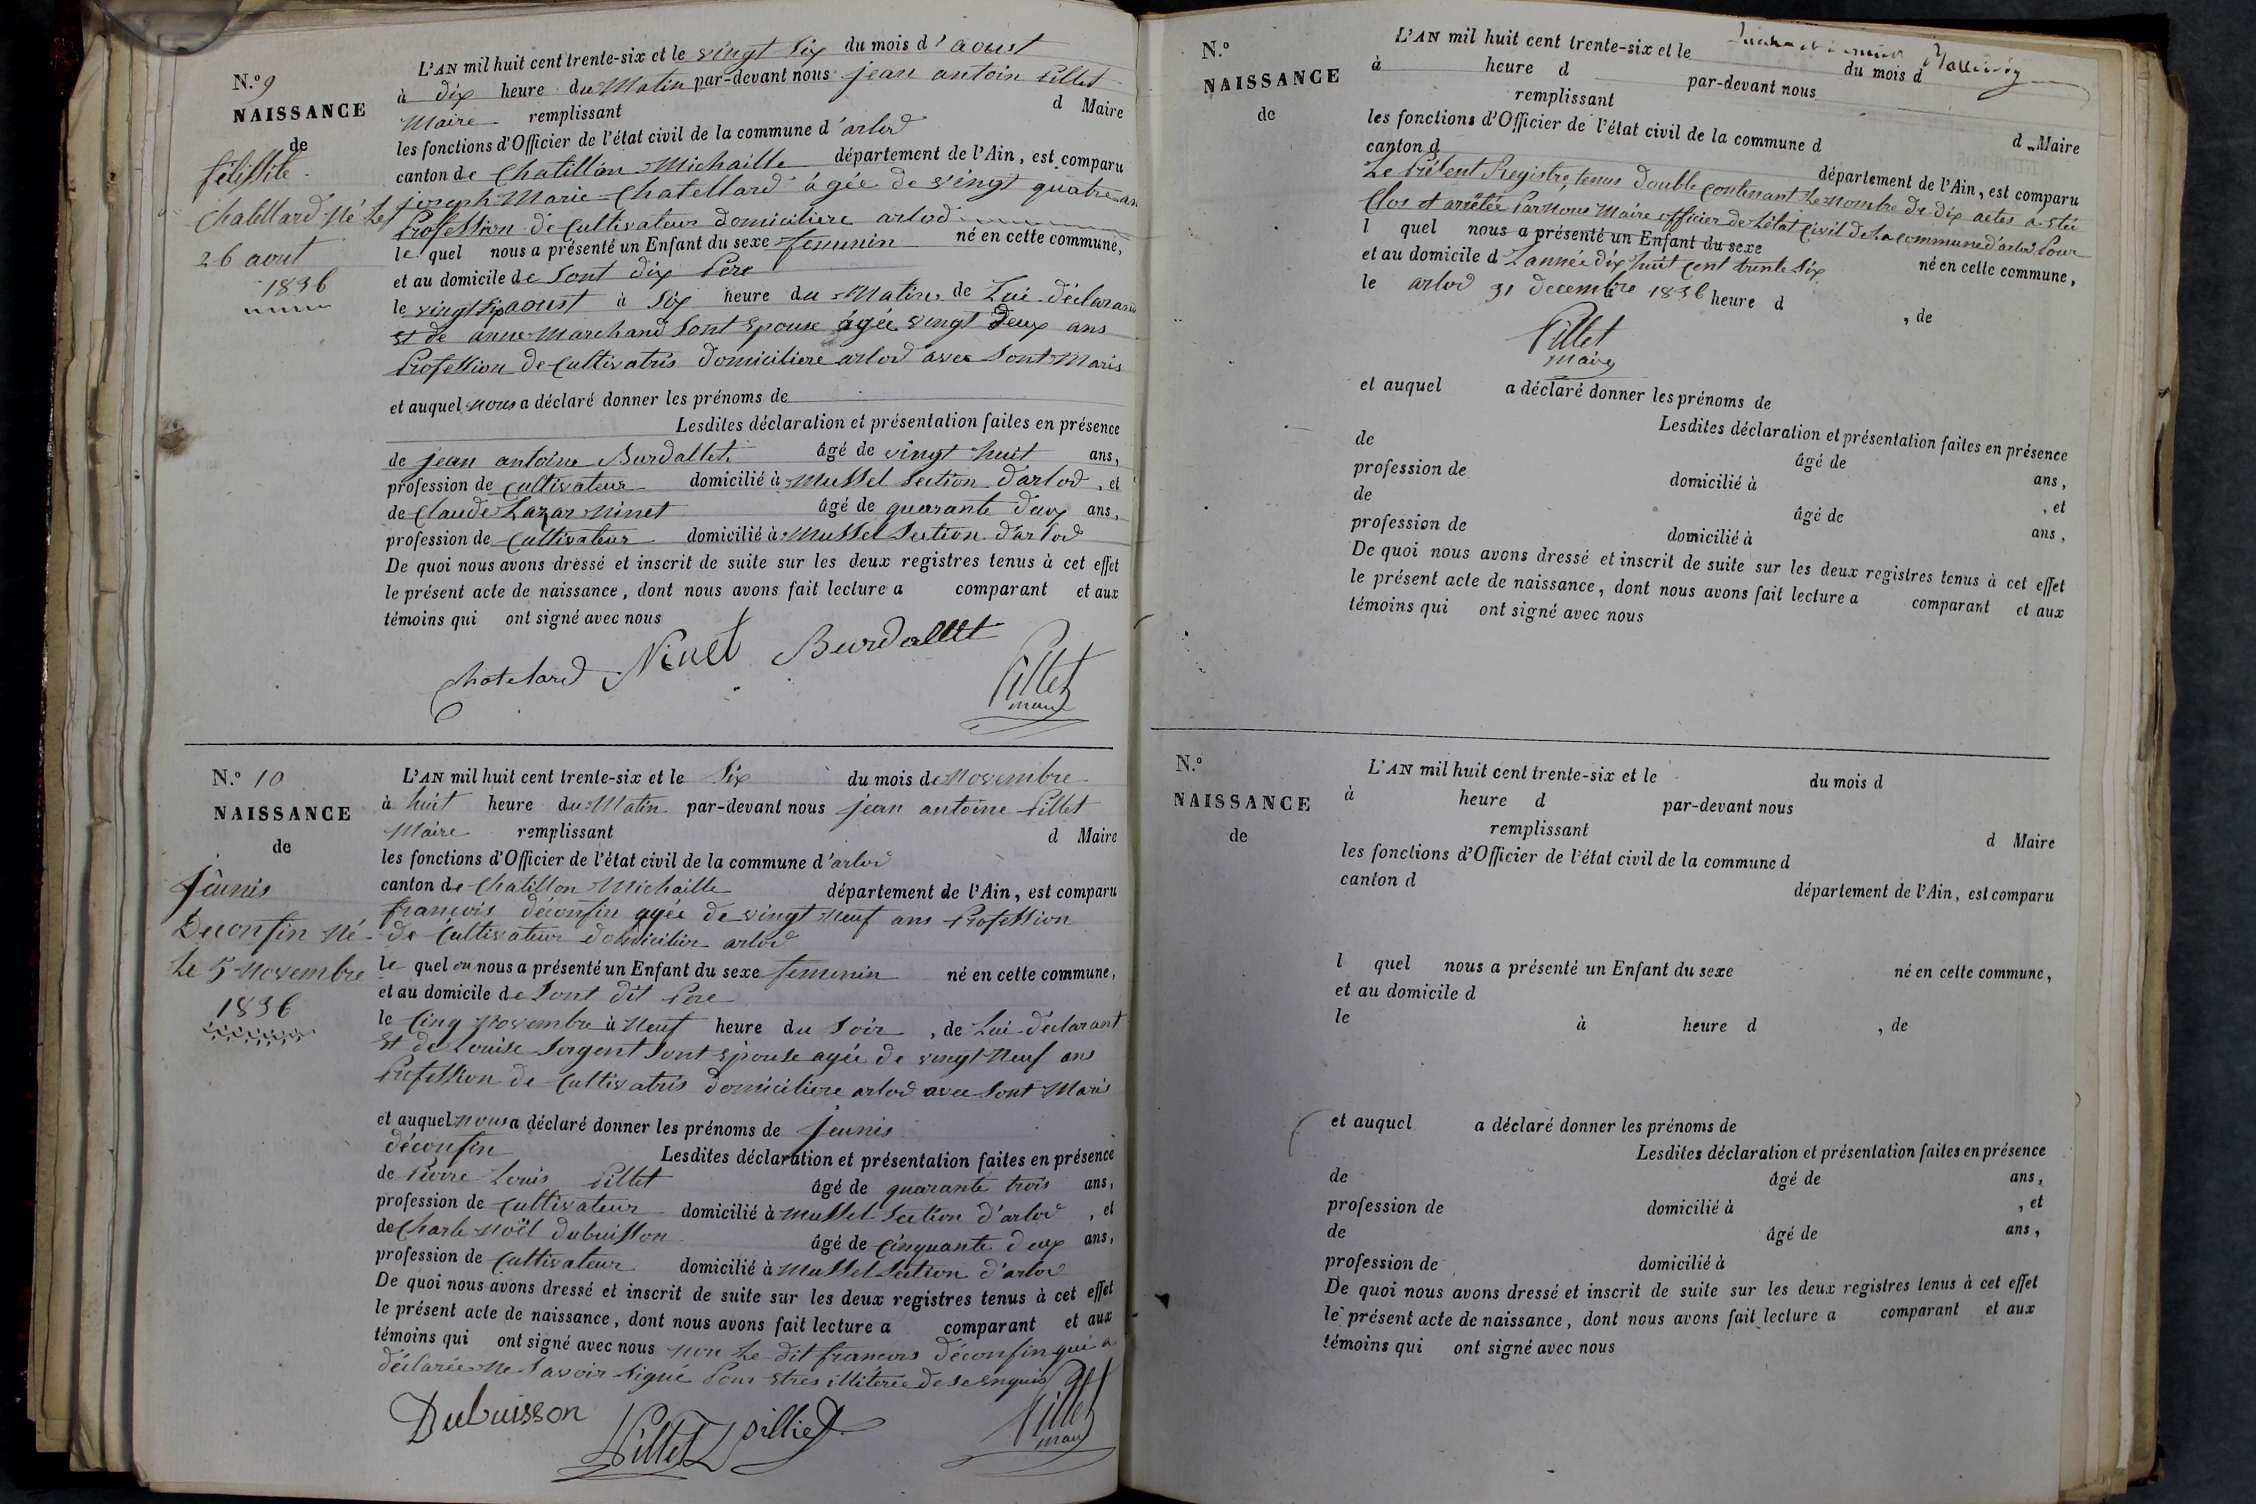 N.º 9
NAISSANCE
de
félissite
Chatellard Né Le
26 aout
1836
L'AN mil huit cent trente-six et le vingt Six du mois d'aoust
à dix heure du Matin par-devant nous jean antoin Pillet
Maire remplissant d Maire
les fonctions d'Officier de l'état civil de la commune d'arlod
canton de Chatillon Michaille département de l'Ain, est comparu
joseph Marie Chatellard âgée de vingt quatre an
Profession de Cultivateur domiciliere arlod
le quel nous a présenté un Enfant du sexe femenin né en cette commune,
et au domicile de Sont dix Père
le vingt Six aoust à Six heure du Matin, de Lui déclarand
Et de anne Marchand Sont Epouse âgée vingt deux ans
Profession de Cultivatris domiciliere arlod avec Sont Maris
et auquel nous a déclaré donner les prénoms de
Lesdites déclaration et présentation faites en présence
de jean antoine Burdallet âgé de vingt huit ans,
profession de Cultivateur domicilié à Mussel Section d'arlod, et
de Claude Lazar Ninet âgé de quarante deux ans,
profession de Cultivateur domicilié à Mussel Section d'arlod
De quoi nous avons dressé et inscrit de suite sur les deux registres tenus à cet effet
le présent acte de naissance, dont nous avons fait lecture a comparant et aux
témoins qui ont signé avec nous
Chatelard Ninet Burdallet
Pillet
maire
N.º 10
NAISSANCE
de
jeunis
Deconfin Né
Le 5 Novembre
1836
L'AN mil huit cent trente-six et le Six du mois de Novembre
à huit heure du Matin par-devant nous jean antoine Pillet
Maire remplissant d Maire
les fonctions d'Officier de l'état civil de la commune d'arlod
canton de Chatillon Michaille département de l'Ain, est comparu
françois déconfin agée de vingt Neuf ans Profession
de Cultivateur domicilier arlod
le quel nous a présenté un Enfant du sexe femenin né en cette commune,
et au domicile de Sont dit Père
le Cinq Novembre à Neuf heure du Soir, de Lui déclarant
Et de Louise Sergent Sont Epouse agée de vingt Neuf ans
Profession de Cultivatris domiciliere arlod avec Sont Maris
et auquel nous a déclaré donner les prénoms de jeunis
déconfin Lesdites déclaration et présentation faites en présence
de Pierre Louis Pillet âgé de quarante trois ans,
profession de Cultivateur domicilié à Mussel Section d'arlod, et
de Charle Noël dubuisson âgé de Cinquante deux ans,
profession de Cultivateur domicilié à Mussel Section d'arlod
De quoi nous avons dressé et inscrit de suite sur les deux registres tenus à cet effet
le présent acte de naissance, dont nous avons fait lecture a comparant et aux
témoins qui ont signé avec nous non Le dit françois déconfin qui a
déclarée Ne Savoir Signé Pour Etres illiterée de Se Enquis
Dubuisson Pillet pillet Pillet
maire
N.º
NAISSANCE
de
L'AN mil huit cent trente-six et le du mois d
à heure d par-devant nous
remplissant d Maire
les fonctions d'Officier de l'état civil de la commune d
canton d département de l'Ain, est comparu
Le Présent Registre, tenus double contenant Le Nombre de dix actes a Été
Clos et arrêtée Par Nous Maire officier de L'état Civil de La commune d'arlod Pour
l quel nous a présenté un Enfant du sexe né en cette commune,
et au domicile d L'année dix huit Cent trente Six
le arlod 31 decembre 1836 heure d , de
Pillet
maire
et auquel a déclaré donner les prénoms de
Lesdites déclaration et présentation faites en présence
de âgé de ans,
profession de domicilié à , et
de âgé de ans,
profession de domicilié à
De quoi nous avons dressé et inscrit de suite sur les deux registres tenus à cet effet
le présent acte de naissance, dont nous avons fait lecture a comparant et aux
témoins qui ont signé avec nous
N.º
NAISSANCE
de
L'AN mil huit cent trente-six et le du mois d
à heure d par-devant nous
remplissant d Maire
les fonctions d'Officier de l'état civil de la commune d
canton d département de l'Ain, est comparu
l quel nous a présenté un Enfant du sexe né en cette commune,
et au domicile d
le à heure d , de
et auquel a déclaré donner les prénoms de
Lesdites déclaration et présentation faites en présence
de âgé de ans,
profession de domicilié à , et
de âgé de ans,
profession de domicilié à
De quoi nous avons dressé et inscrit de suite sur les deux registres tenus à cet effet
le présent acte de naissance, dont nous avons fait lecture a comparant et aux
témoins qui ont signé avec nous